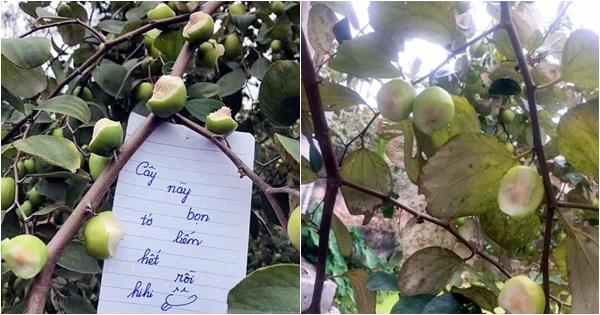 Cây
này
tớ bọn
liếm
hết
rồi
hihi